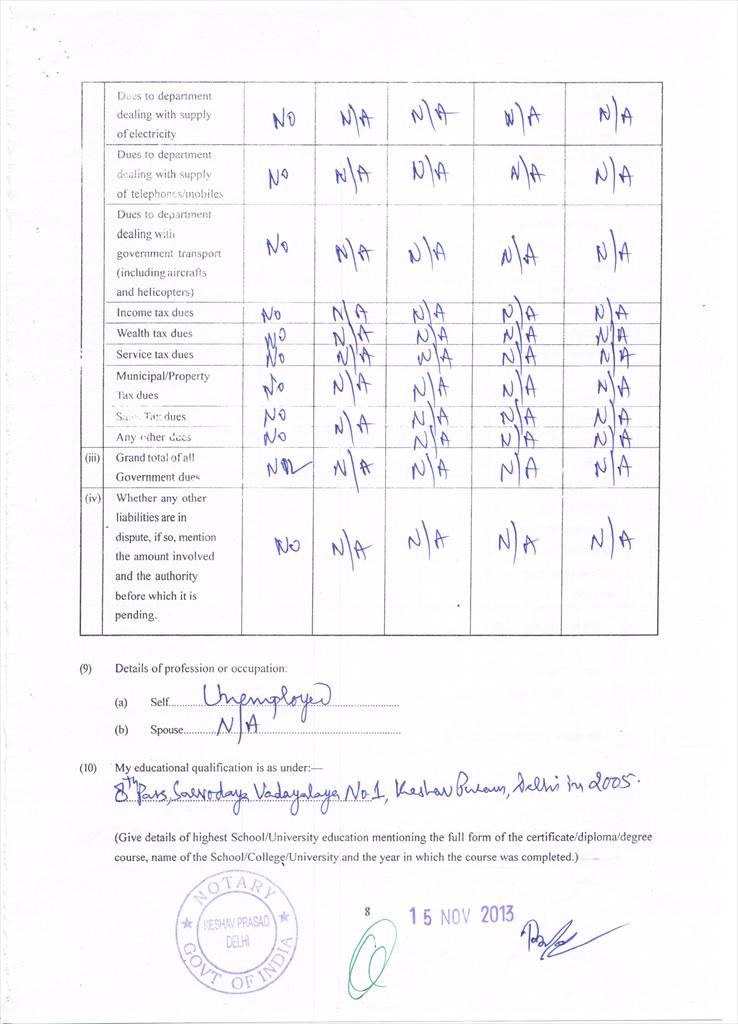 Dues to department
dealing with supply
of electricity
NO N/A N/A N/A N/A
Dues to department
dealing with supply
of telephones/mobiles
NO N/A N/A N/A N/A
Dues to department
dealing with
government transport
(including aircrafts
and helicopters)
NO N/A N/A N/A N/A
Income tax dues NO N/A N/A N/A N/A
Wealth tax dues NO N/A N/A N/A N/A
Service tax dues NO N/A N/A N/A N/A
Municipal/Property
Tax dues
NO N/A N/A N/A N/A
Sales Tax dues NO N/A N/A N/A N/A
Any other dues NO N/A N/A N/A
(iii) Grand total of all
Government dues
N/A N/A N/A N/A
(iv) Whether any other
liabilities are in
dispute, if so, mention
the amount involved
and the authority
before which it is
pending.
NO N/A N/A N/A N/A
(9) Details of profession or occupation:
(a) Self.....Unemployed.....
(b) Spouse.....N/A.....
(10) My educational qualification is as under:—
8th Pass, Sarvodaya Vadayalaya No.1, Keshav Puram, Delhi in 2005.
(Give details of highest School/University education mentioning the full form of the certificate/diploma/degree
course, name of the School/College/University and the year in which the course was completed.)
NOTARY
KESHAV PRASAD
DELHI
GOVT OF INDIA
8
15 NOV 2013